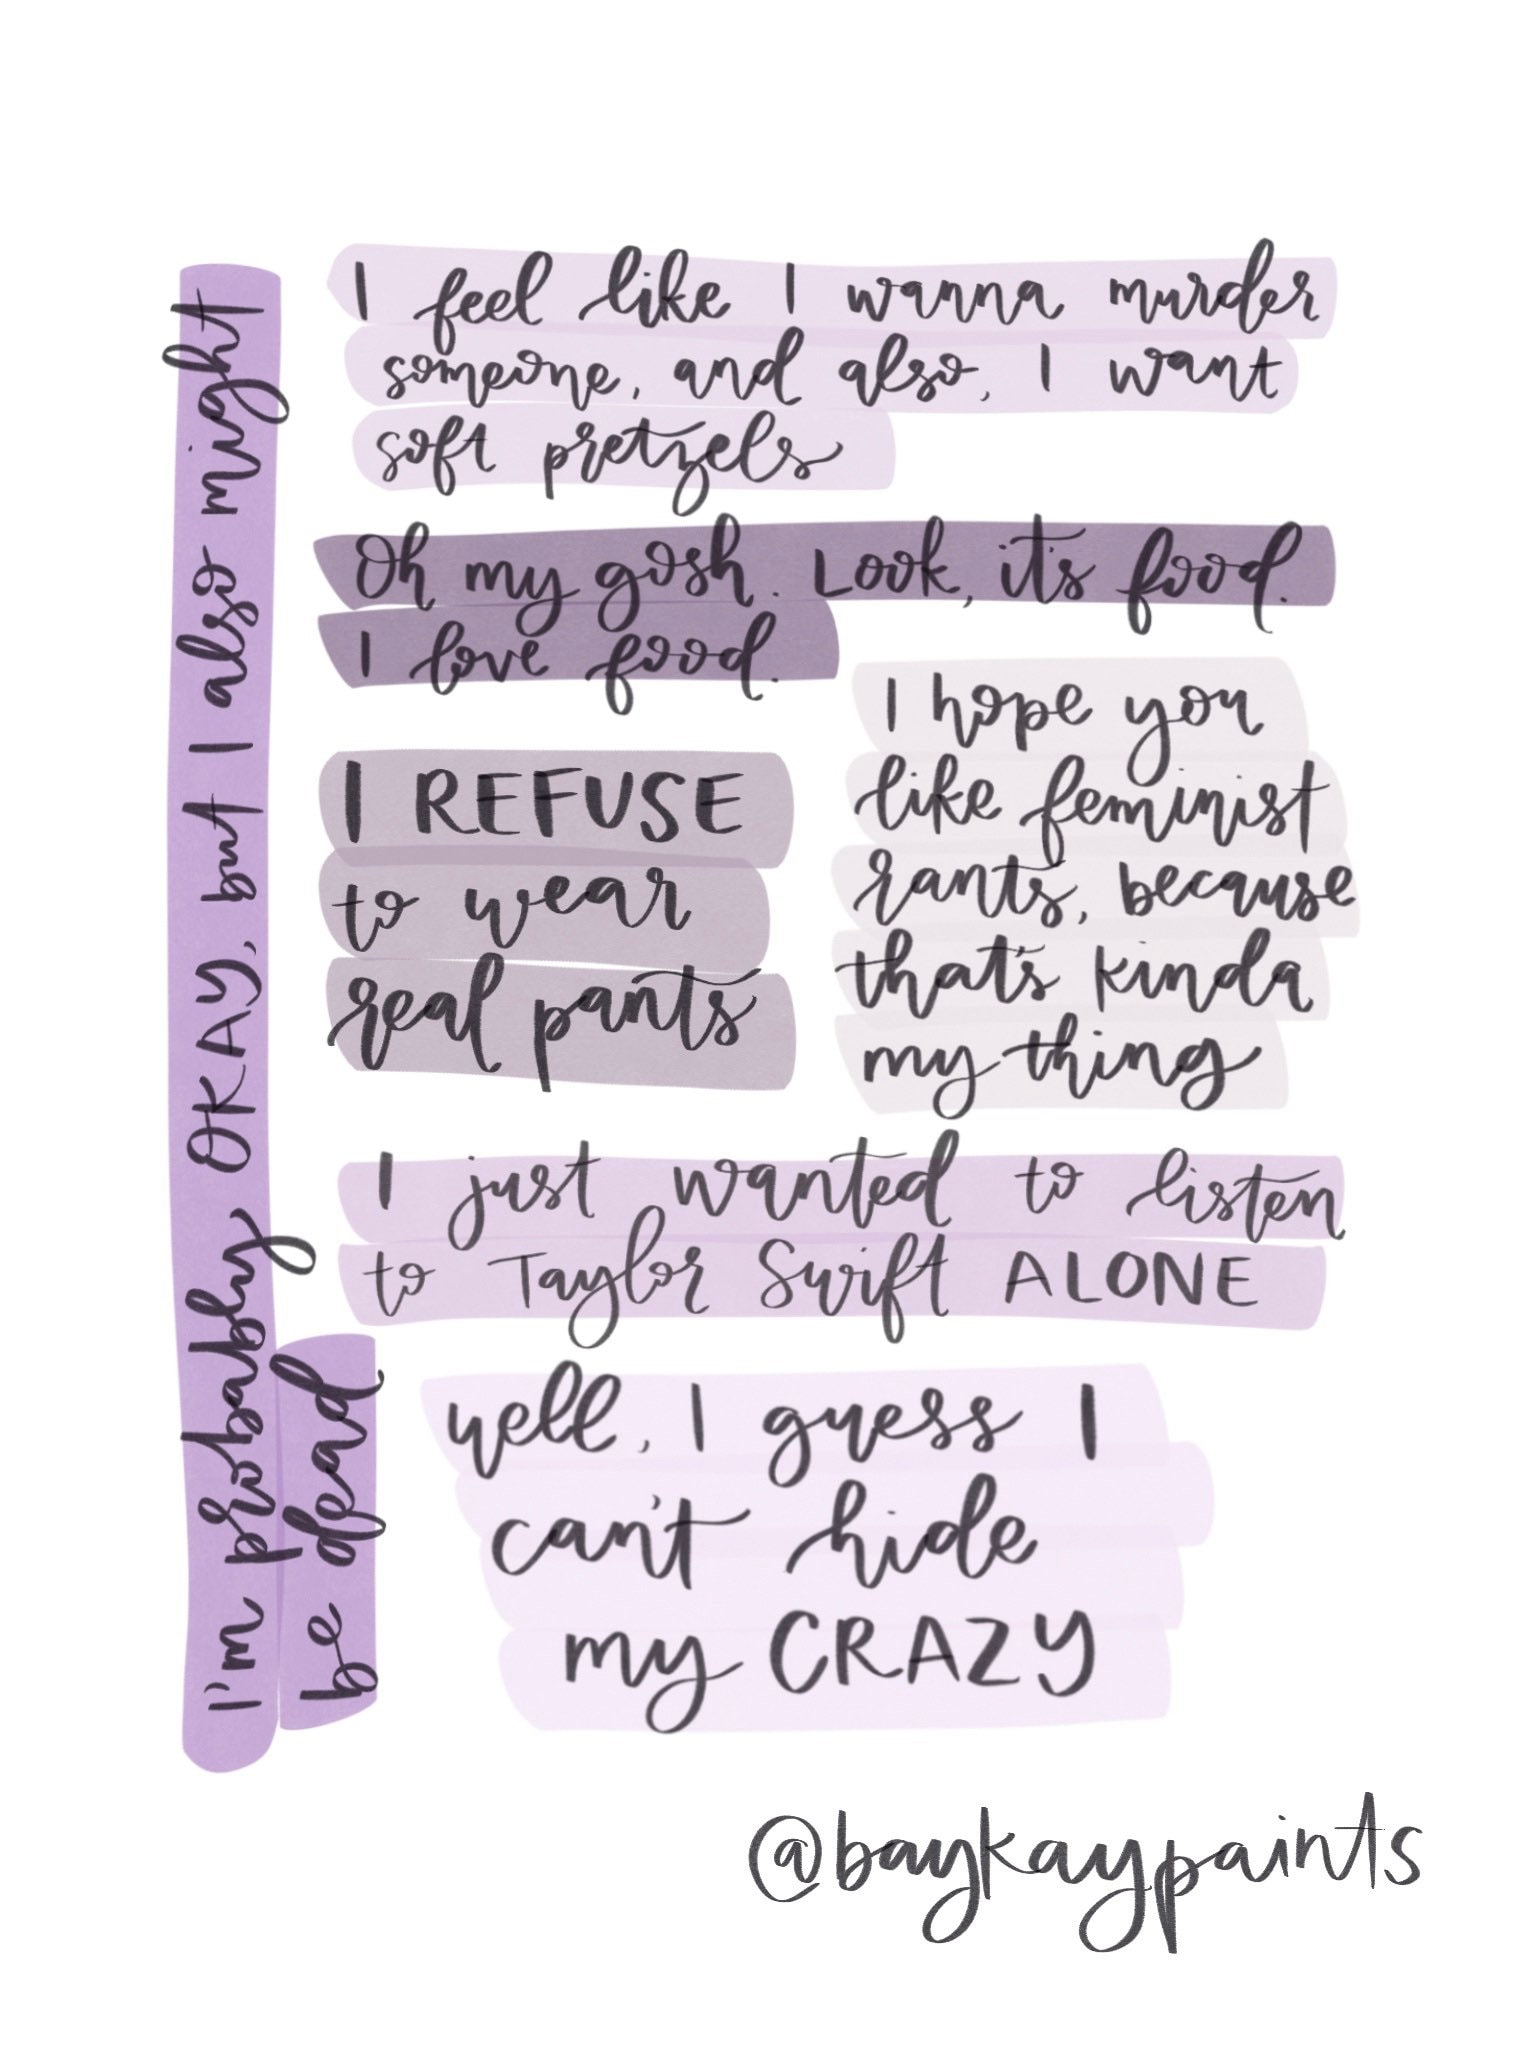 I'm probably OKAY, but I also might
be dead
I feel like I wanna murder
someone, and also, I want
soft pretzels
Oh my gosh. Look, it's food.
I love food.
I REFUSE
to wear
real pants
I hope you
like feminist
rants, because
that's kinda
my thing
I just wanted to listen
to Taylor Swift ALONE
well, I guess I
can't hide
my CRAZY
@baykaypaints